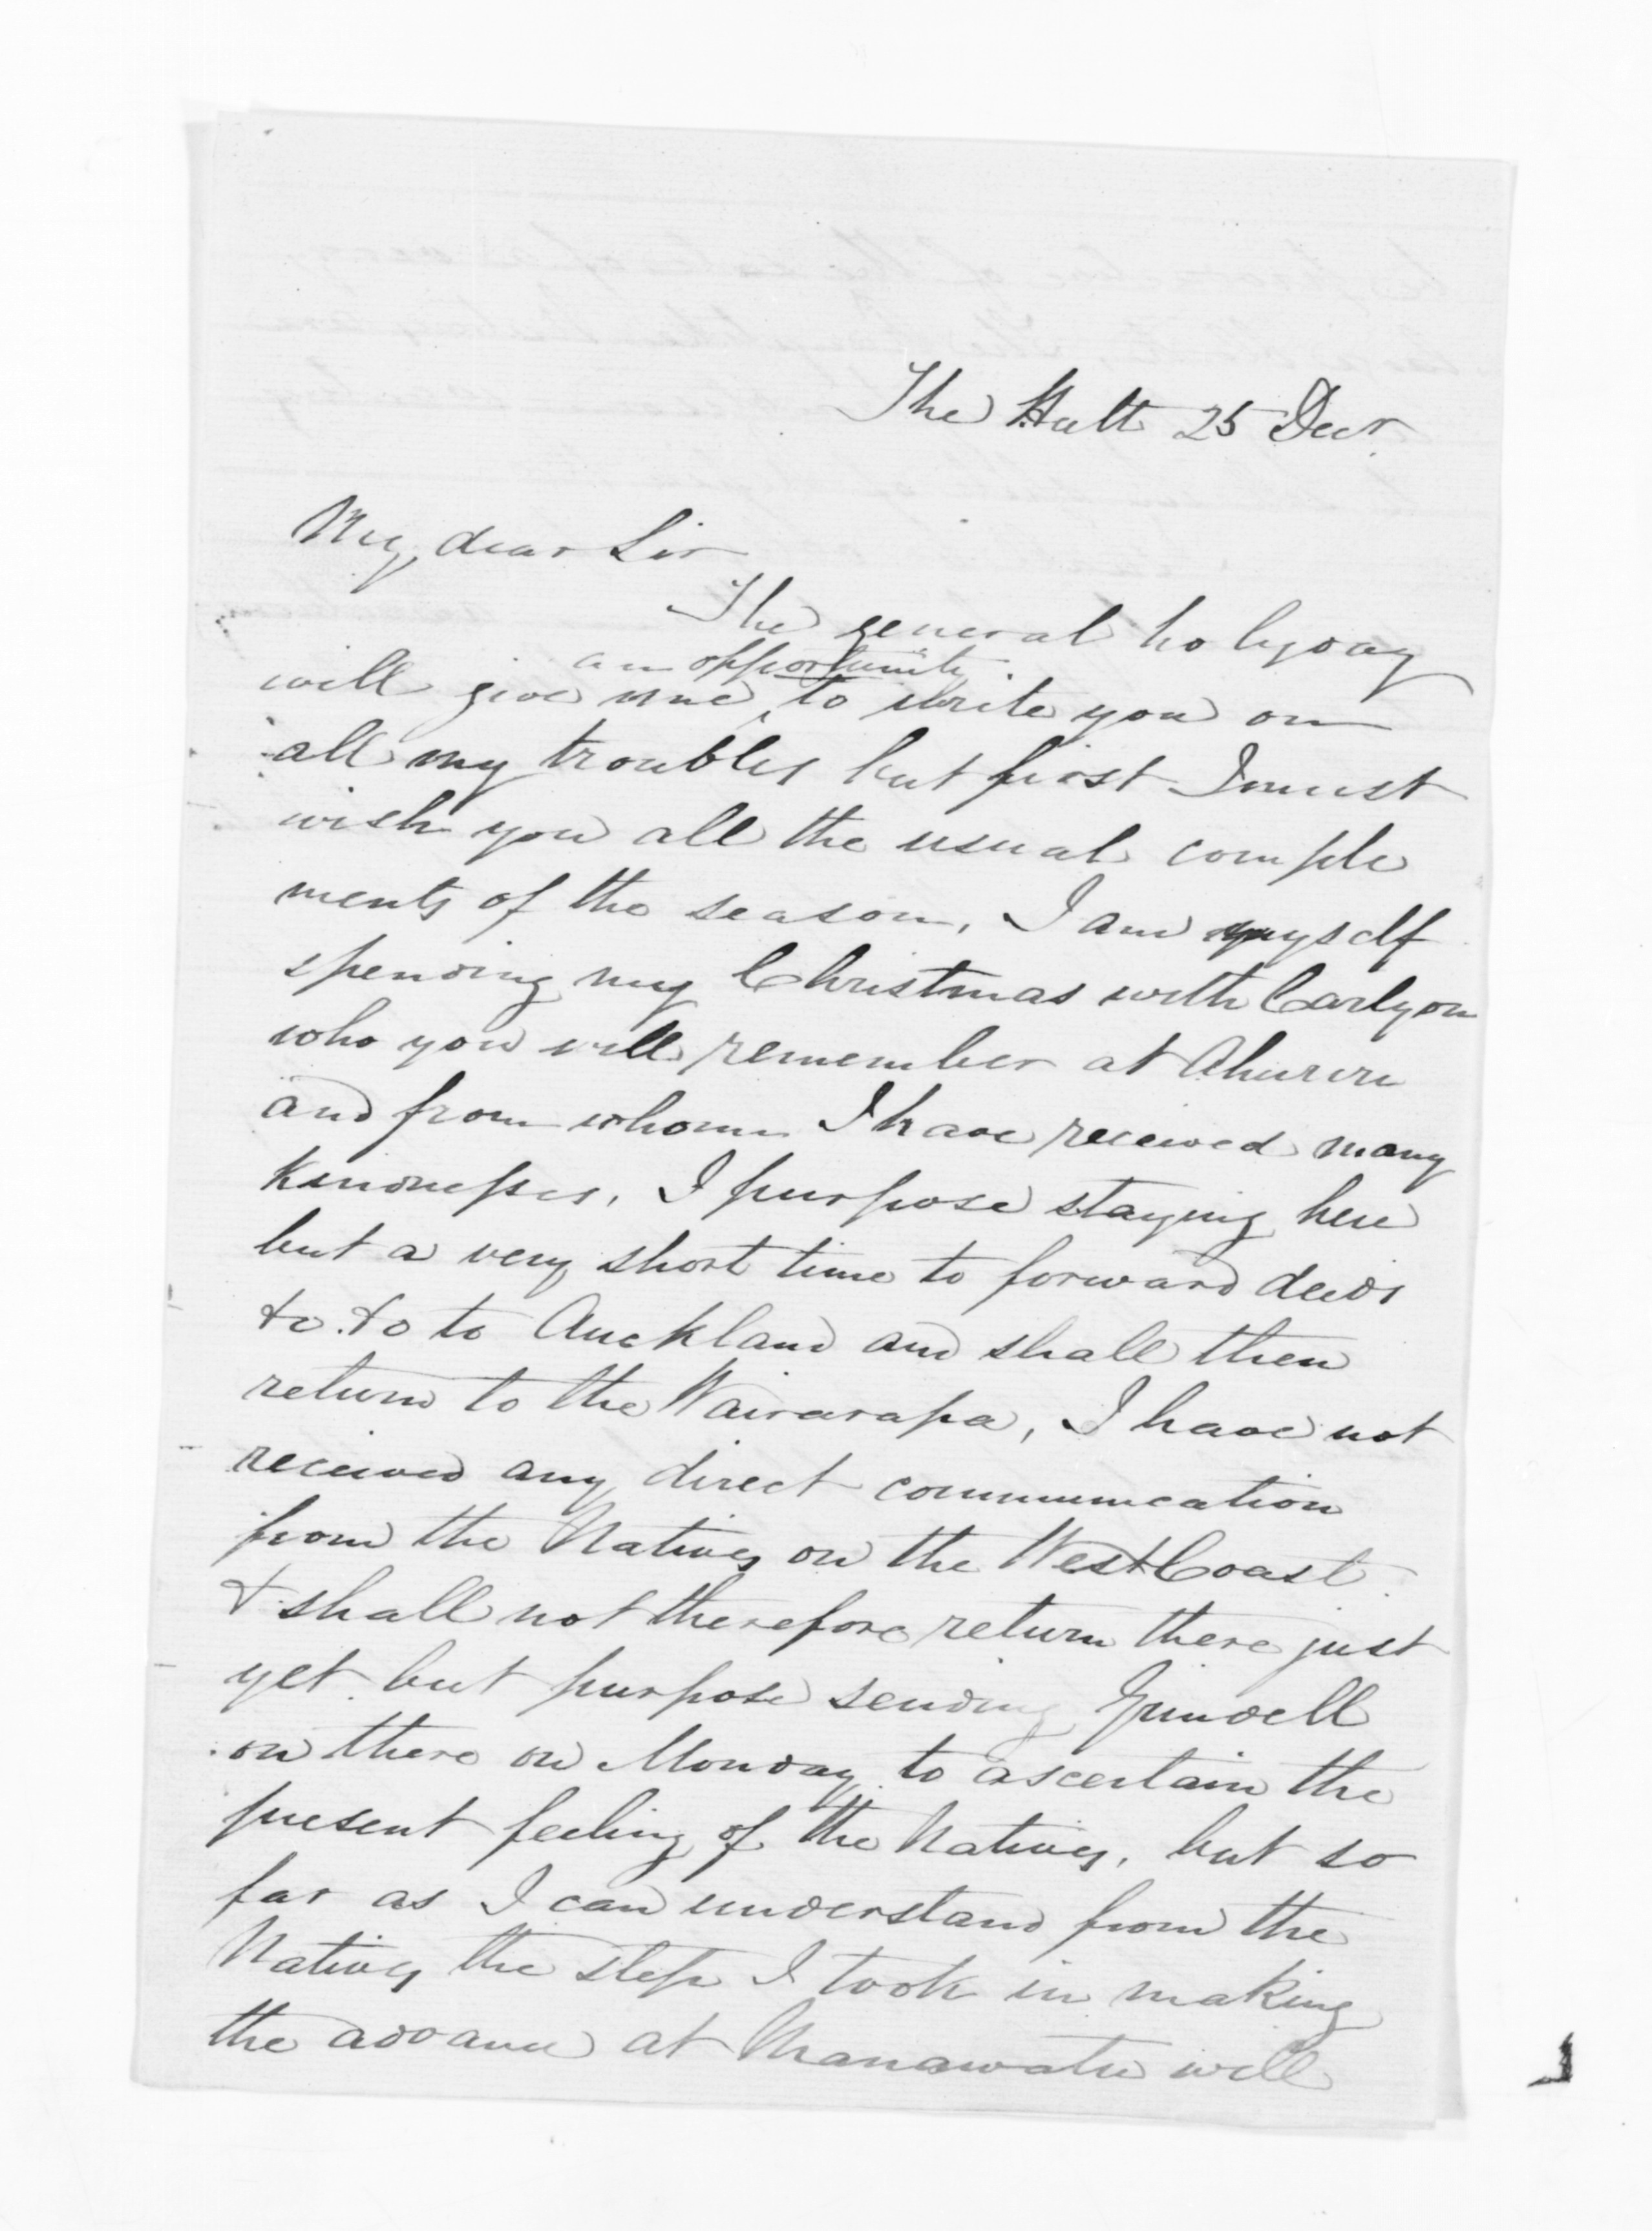 The Hutt 25 Decr.
My dear Sir
The general holyday
an opportunity
will give me to write you on
all my troubles but first I must
wish you all the usual comple
ments of the season, I am myself
spending my Christmas with Carlyon
who you will remember at Ahuriri
and from whom I have received many
kindnesses, I purpose staying here
but a very short time to forward deeds
&c. &c to Auckland and shall then
return to the Wairarapa, I have not
received any direct communication
from the Natives on the West Coast
& shall not therefore return there just
yet but purpose sending Grindell
on there on Monday to ascertain the
present feeling of the Natives, but so
far as I can understand from the
Natives the step I took in making
the advance at Manawatu will